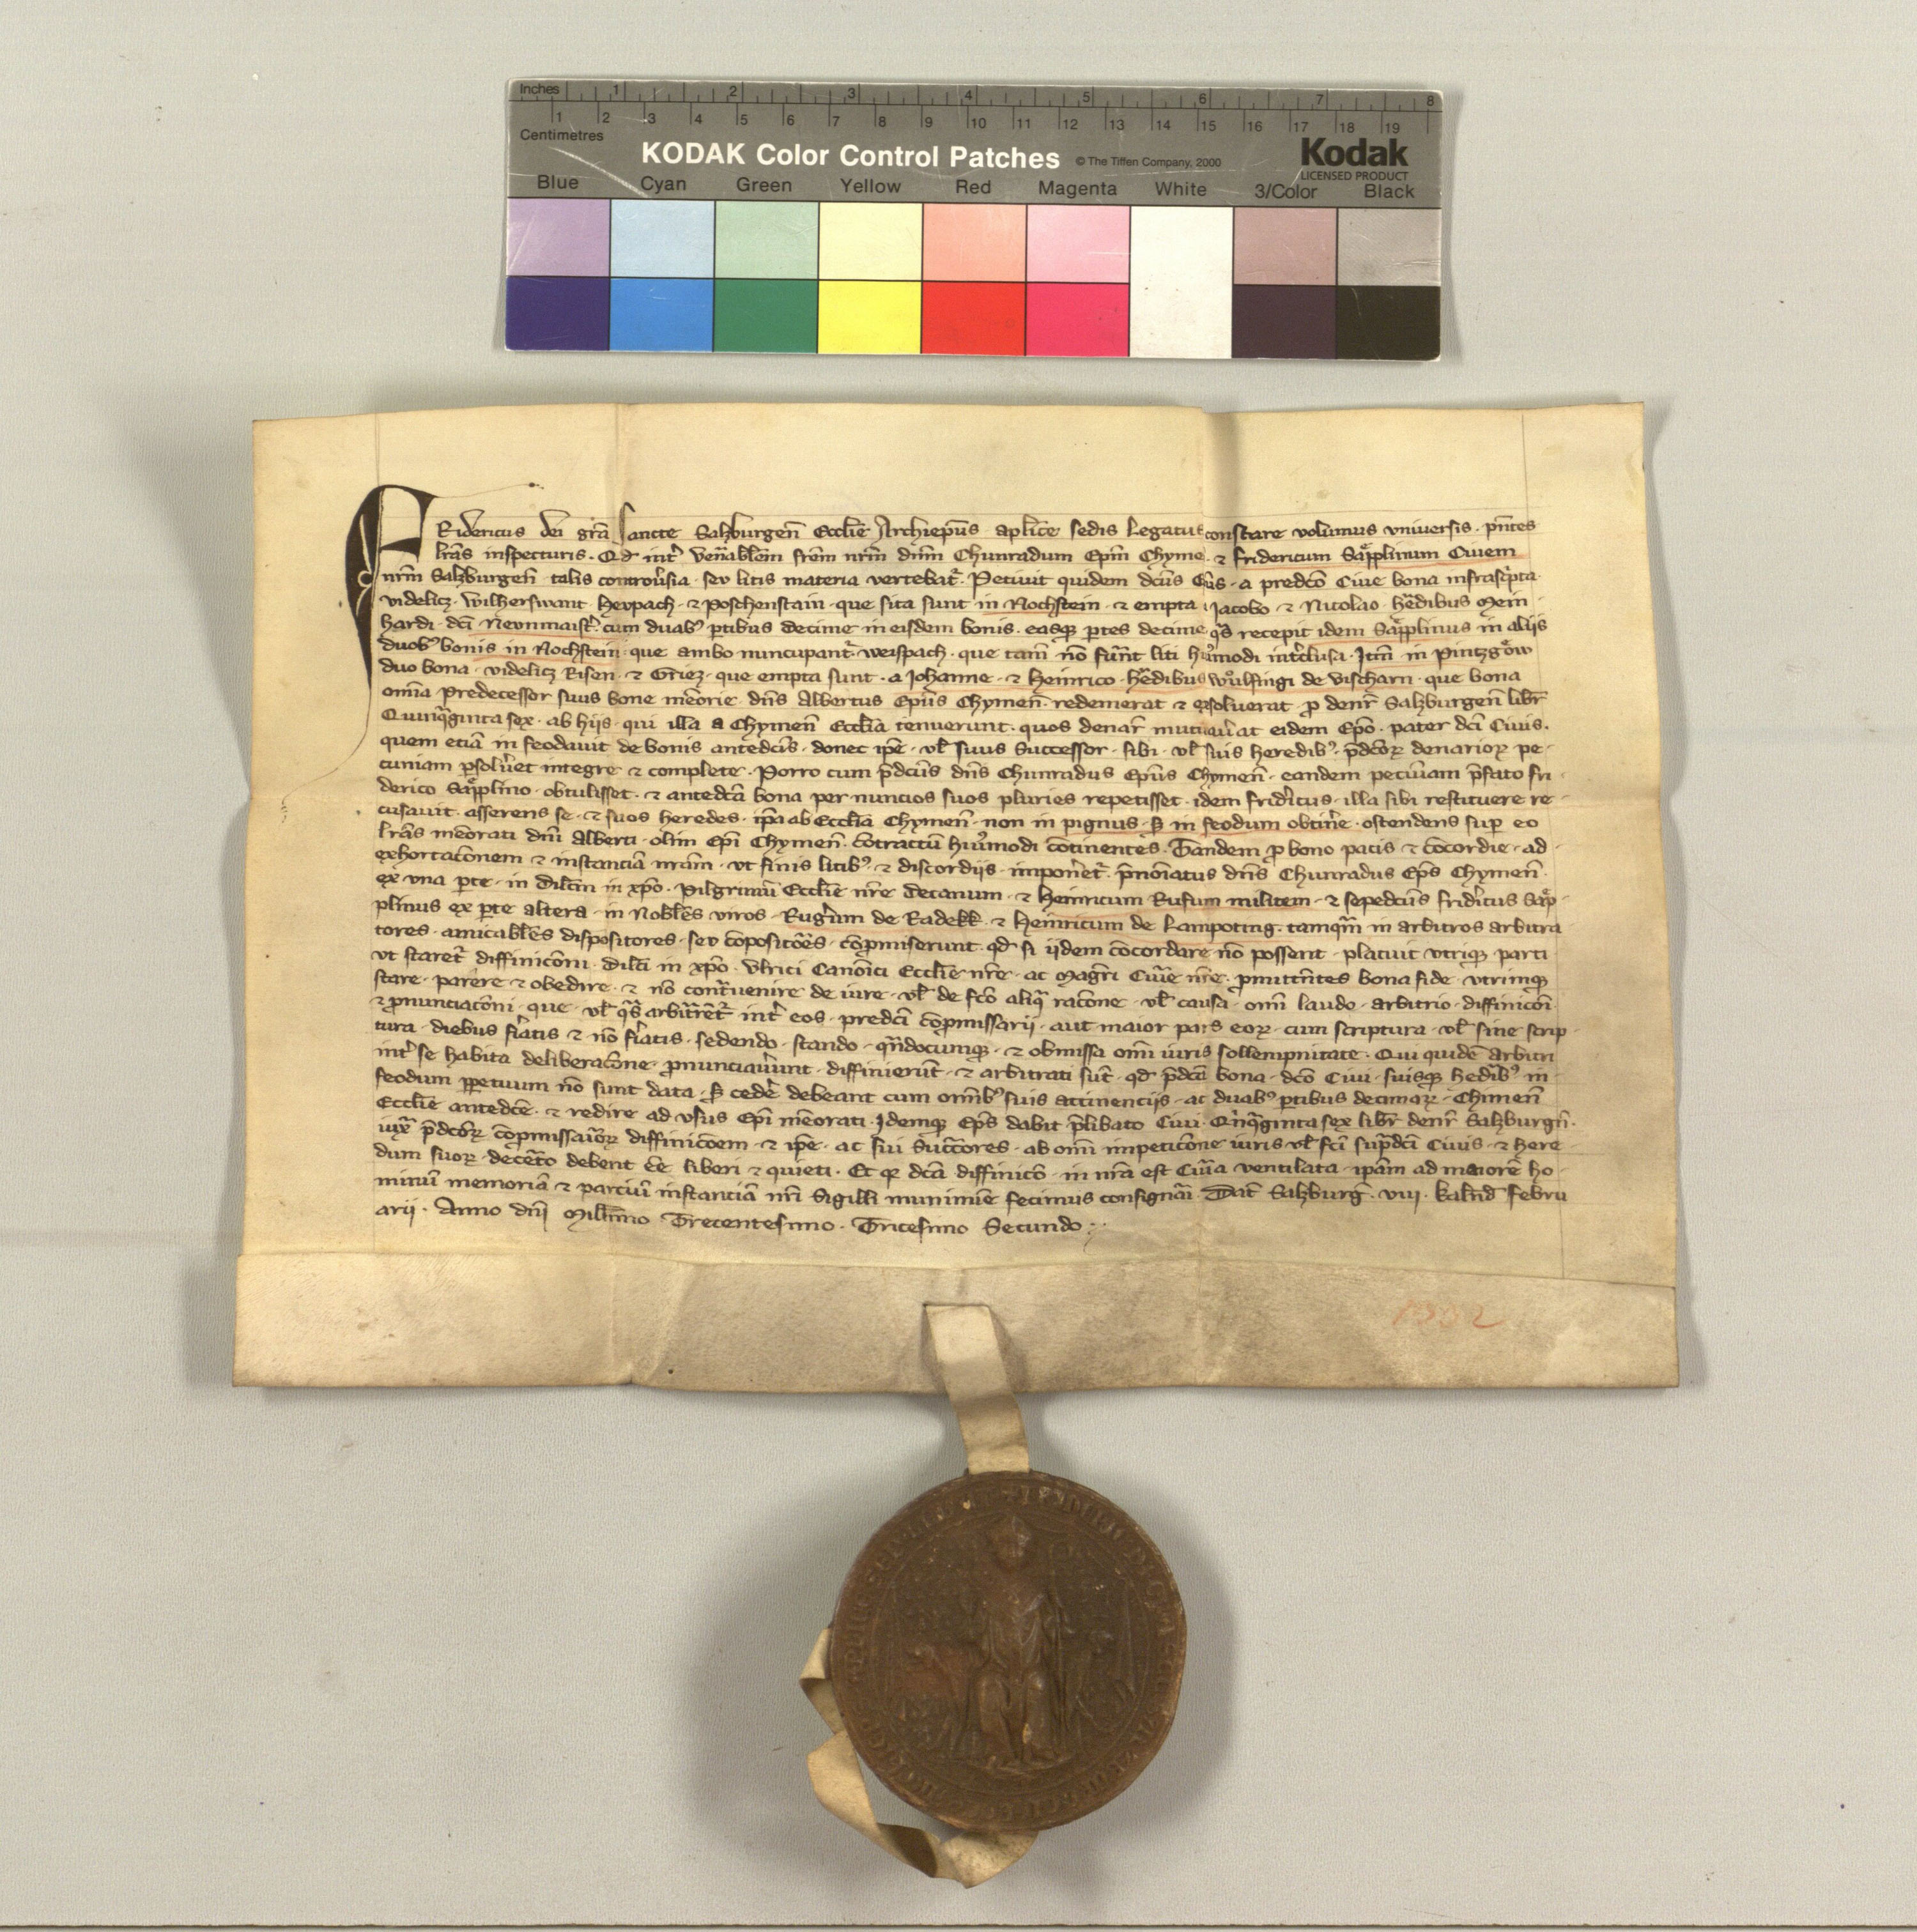 Inches 1 2 3 4 5 6 7 8
1 2 3 4 5 6 7 8 9 10 11 12 13 14 15 16 17 18 19
Centimetres
KODAK Color Control Patches © The Tiffen Company, 2000 Kodak
LICENSED PRODUCT
Blue Cyan Green Yellow Red Magenta White 3/Color Black
FRidericus dei gr̄a sancte Salzburgen̄ Eccl̄ie Archiep̄us aplice sedis Legatus constare volumus vniuersis · p̄ntes
lr̄as inspecturis · Qd int̓ ven̄abilem fr̄em nr̄m dn̄m Chunradum Ep̄m Chyme · ⁊ fridericum Sapplinum Ciuem
nr̄m Salzburgen̄ · talis controu̓sia · seu litis materia vertebat᷑ · Petiuit quidem dc̄us Ep̄us · a predc̄o Ciue bona infrasc̓pta ·
videlicz · wilherswant · Heypach · ⁊ Poschenstain · que sita sunt in Nochstein · ⁊ empta Jacobo · ⁊ Nicolao · h̓edibus Mein
hardi · dc̄i Neunmaist̓ · cum duab᷒ p̄tibus decime in eisdem bonis · easq̨ p̄tes decime q̓s recepit idem Sapplinus in alijs
duob᷒ bonis in Nochstein · que ambo nuncupant᷑ weispach · que tam̄ nō fūnt liti hui̓modi int̓clusa · Itm̄ in Pintzgow
duo bona · videlicz Risen · ⁊ Griez · que empta sunt · a Johanne · ⁊ Heinrico · h̓edibus wulfingi de Vischarn · que bona
om̄ia · predecessor suus bone mēorie · dn̄s Albertus Ep̄us Chymen̄ · redemerat ⁊ exsoluerat p̄ den̄r Salzburgen̄ libr̄
Quinq̓ginta sex · ab hijs · qui illa a Chymen̄ Eccl̄ia tenuerunt · quos denar̄ mutuau̓at eidem Ep̄o · pater dc̄i Ciuis ·
quem etiā in feodauit de bonis antedc̄is · donec ip̄e · vl̄ suus Successor · sibi · vl̄ suis heredib᷒ · p̄dc̄oꝝ denarioꝝ pe
cuniam p̄solu̓et integre ⁊ complete · Porro cum p̄dc̄us dn̄s Chunradus Ep̄us Chymen̄ · eandem pecūiam p̄fato fri
derico Sapplino · obtulisset · ⁊ antedc̄a bona per nuncios suos pluries repetisset · idem frid̓icus · illa sibi restituere re
cusauit · asserens se · ⁊ suos heredes · ip̄a ab Eccl̄ia Chymen̄ · non in pignus · s̄ in feodum obtin̓e · ostendens sup̄ eo
lr̄as mēorati dn̄i Alberti · olim Ep̄i Chymen̄ · cōtractū hui̓modi cōtinentes · Tandem p̄ bono pacis ⁊ cōcordie · ad
exhortacōnem ⁊ instanciā nr̄am · vt finis litib᷒ ⁊ discordijs · impon̓et᷑ · p̄nōiatus dn̄s Chunradus Ep̄s Chymen̄ ·
ex vna p̄te · in dilc̄m in xp̄o · Pilgrimū Eccl̄ie nr̄e Decanum · ⁊ Heinricum Rufum militem · ⁊ sepedc̄us frid̓icus Sap
plinus ex p̄te altera · in Nobl̄es viros · Rug̓um de Radekk · ⁊ Heinricum de Lampoting · tamq̓m in arbitros arbitra
tores · amicabl̄es dispositores · seu cōpositōes · cōpmiserunt · qd si ijdem cōcordare nō possent · placuit vtriq̨ parti
vt staret᷑ diffinicōni · dilc̄i in xp̄o · Vlrici Canōici Eccl̄ie nr̄e · ac Mag̓ri Curie nr̄e · p̄mittn̄tes bona fide · vtrimq̨
stare · parere · ⁊ obedire · ⁊ nō cont̓uenire de iure · vl̄ de fc̄o aliq̓ racōne · vl̄ causa · om̄i laudo · arbitrio · diffinicōi
⁊ p̄nunciacōni · que · vl̄ q̓s arbit̓rēt᷑ int̓ eos · predc̄i cōpmissarij · aut maior pars eoꝝ · cum scriptura · vl̄ sine scrip
tura · diebus fiatis ⁊ nō fiatis · sedendo · stando · qn̄documq̨ · ⁊ obmissa om̄i iuris sollempnitate · Qui quidē arbitri
int̓ se habita deliberacōne · p̄nunciau̓unt · diffinierūt · ⁊ arbitrati sūt · qd p̄dc̄a bona · dc̄o Ciui · suisq̨ hedib᷒ · in
feodum p̄petuum nō sunt data · s̄ ced̓e debeant cum om̄ib᷒ suis attinencijs · ac duab᷒ p̄tibus decimaꝝ · Chimen̄
Eccl̄ie antedc̄e · ⁊ redire ad vsus Ep̄i mēorati · Idemq̨ Ep̄s dabit p̄libato Ciui · Qi̓nq̓ginta sex libr̄ den̄r Salzburgn̄ ·
iux̄ p̄dc̄oꝝ cōpmissarioꝝ diffinicōem · ⁊ ip̄e · ac sui Succōres · ab om̄i impeticōne iuris vl̄ fc̄i sup̓dc̄i Ciuis · ⁊ here
dum suoꝝ · decet̓o debent ēe liberi ⁊ quieti · Et q̨ dc̄a diffinicō · in nr̄a est Cur̄ia ventilata · ip̄am ad maiorē ho
minū memoriā ⁊ parciū instanciā nr̄i Sigilli munimīe fecimus consignāi · Dat̄ Salzburḡ · viij · kalend̄ Febru
arij · Anno dn̄i Mill̄imo Trecentesimo · Tricesimo Secundo
1332